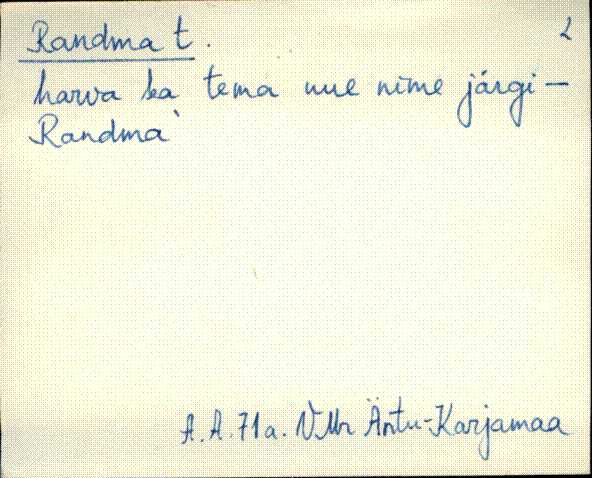 Randma t. 2
harva ka tema uue nime järgi –
Randma
A.A. 71a. VMr Äntu-Karjamaa